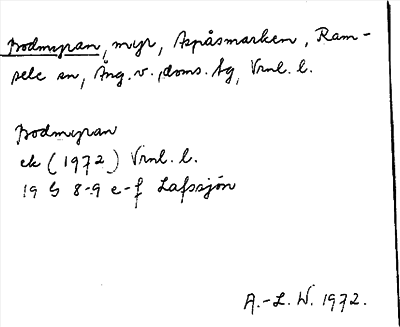 Bodmyran, myr, Aspåsmarken, Ram-
sele sn, Ång. v. doms. tg, Vrnl. l.
Bodmyran
ek (1972) Vrnl. l.
19 G 8-9 e-f Lafssjön
A.-L. W. 1972.